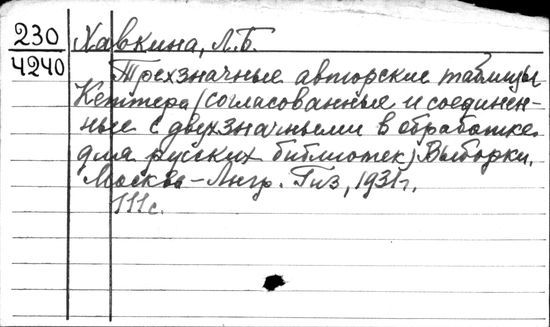 230 Хавкина, Л.Б.
4240
Трехзначные авторские таблицы
Кеттера (согласованные и соединен-
ные с двухзначными в обработке
для русских библиотек) Выборки.
Москва-Лнгр. Гиз, 1931г.
111с.